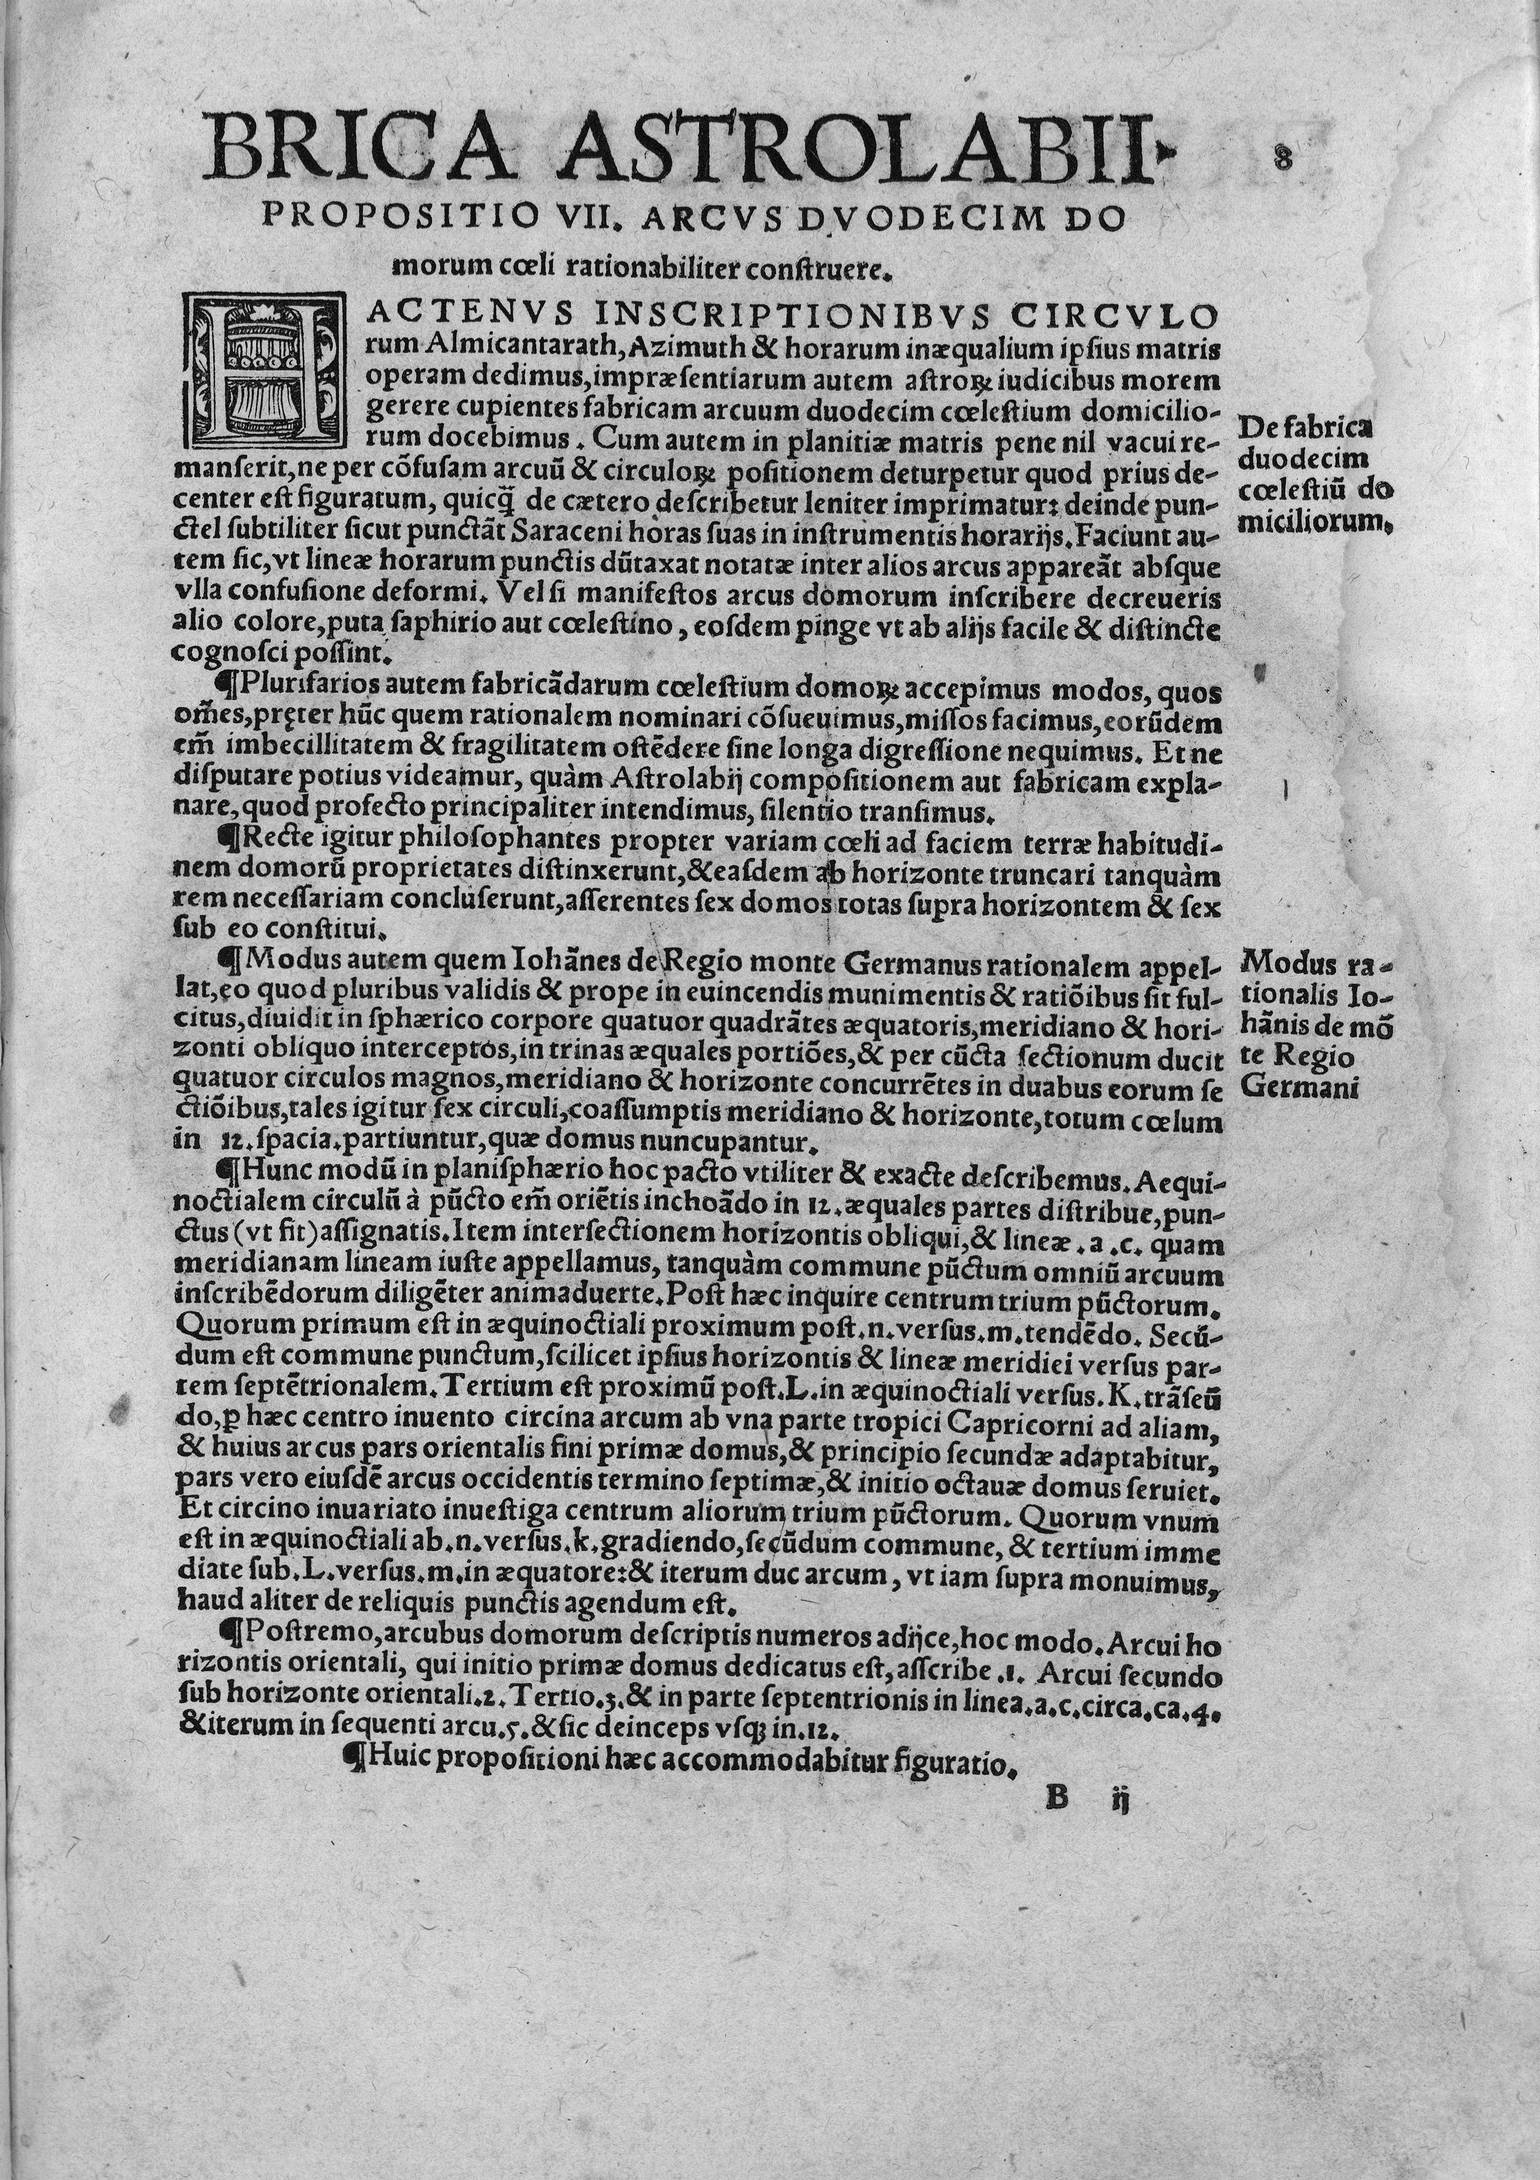 BRICA ASTROLABII. 8
PROPOSITIO VII. ARCVS DVODECIM DO
morum cœli rationabiliter conſtruere.
HACTENVS INSCRIPTIONIBVS CIRCVLO
rum Almicantarath, Azimuth & horarum inæqualium ipſius matris
operam dedimus, impræſentiarum autem aſtroꝝ iudicibus morem
gerere cupientes fabricam arcuum duodecim cœleſtium domicilio-
rum docebimus. Cum autem in planitiæ matris pene nil vacui re-
manſerit, ne per cõfuſam arcuũ & circuloꝝ poſitionem deturpetur quod prius de-
center eſt figuratum, quicq̃ de cætero deſcribetur leniter imprimatur: deinde pun-
ctel ſubtiliter ſicut punctãt Saraceni horas ſuas in inſtrumentis horarijs. Faciunt au-
tem ſic, vt lineæ horarum punctis dũtaxat notatæ inter alios arcus appareãt abſque
vlla confuſione deformi. Vel ſi manifeſtos arcus domorum inſcribere decreueris
alio colore, puta ſaphirio aut cœleſtino, eoſdem pinge vt ab alijs facile & diſtincte
cognoſci poſſint.
De fabrica
duodecim
cœleſtiũ do
miciliorum.
¶Plurifarios autem fabricãdarum cœleſtium domoꝝ accepimus modos, quos
om̃es, pręter hũc quem rationalem nominari cõſueuimus, miſſos facimus, eorũdem
em̃ imbecillitatem & fragilitatem oſtẽdere ſine longa digreſſione nequimus. Et ne
diſputare potius videamur, quàm Aſtrolabij compoſitionem aut fabricam expla-
nare, quod profecto principaliter intendimus, ſilentio tranſimus.
¶Recte igitur philoſophantes propter variam cœli ad faciem terræ habitudi-
nem domorũ proprietates diſtinxerunt, & eaſdem ab horizonte truncari tanquàm
rem neceſſariam concluſerunt, aſſerentes ſex domos totas ſupra horizontem & ſex
ſub eo conſtitui.
¶Modus autem quem Iohãnes de Regio monte Germanus rationalem appel-
lat, eo quod pluribus validis & prope in euincendis munimentis & ratiõibus ſit ful-
citus, diuidit in ſphærico corpore quatuor quadrãtes æquatoris, meridiano & hori-
zonti obliquo interceptos, in trinas æquales portiões, & per cũcta ſectionum ducit
quatuor circulos magnos, meridiano & horizonte concurrẽtes in duabus eorum ſe
ctiõibus, tales igitur ſex circuli, coaſſumptis meridiano & horizonte, totum cœlum
in 12. ſpacia. partiuntur, quæ domus nuncupantur.
Modus ra-
tionalis Io-
hãnis de mõ
te Regio
Germani
¶Hunc modũ in planiſphærio hoc pacto vtiliter & exacte deſcribemus. Aequi-
noctialem circulũ à pũcto em̃ oriẽtis inchoãdo in 12. æquales partes diſtribue, pun-
ctus (vt fit) aſſignatis. Item interſectionem horizontis obliqui, & lineæ .a .c. quam
meridianam lineam iuſte appellamus, tanquàm commune pũctum omniũ arcuum
inſcribẽdorum diligẽter animaduerte. Poſt hæc inquire centrum trium pũctorum.
Quorum primum eſt in æquinoctiali proximum poſt. n. verſus. m. tendẽdo. Secũ-
dum eſt commune punctum, ſcilicet ipſius horizontis & lineæ meridiei verſus par-
tem ſeptẽtrionalem. Tertium eſt proximũ poſt. L. in æquinoctiali verſus. K. trãſeũ
do, ꝑ hæc centro inuento circina arcum ab vna parte tropici Capricorni ad aliam,
& huius arcus pars orientalis fini primæ domus, & principio ſecundæ adaptabitur,
pars vero eiuſdẽ arcus occidentis termino ſeptimæ, & initio octauæ domus ſeruiet.
Et circino inuariato inueſtiga centrum aliorum trium pũctorum. Quorum vnum
eſt in æquinoctiali ab. n. verſus. k. gradiendo, ſecũdum commune, & tertium imme
diate ſub. L. verſus. m. in æquatore: & iterum duc arcum, vt iam ſupra monuimus,
haud aliter de reliquis punctis agendum eſt.
¶Poſtremo, arcubus domorum deſcriptis numeros adijce, hoc modo. Arcui ho
rizontis orientali, qui initio primæ domus dedicatus eſt, aſſcribe .1. Arcui ſecundo
ſub horizonte orientali. 2. Tertio. 3. & in parte ſeptentrionis in linea. a. c. circa. ca. 4.
& iterum in ſequenti arcu. 5. & ſic deinceps vſqꝫ in. 12.
¶Huic propoſitioni hæc accommodabitur figuratio.
B ij